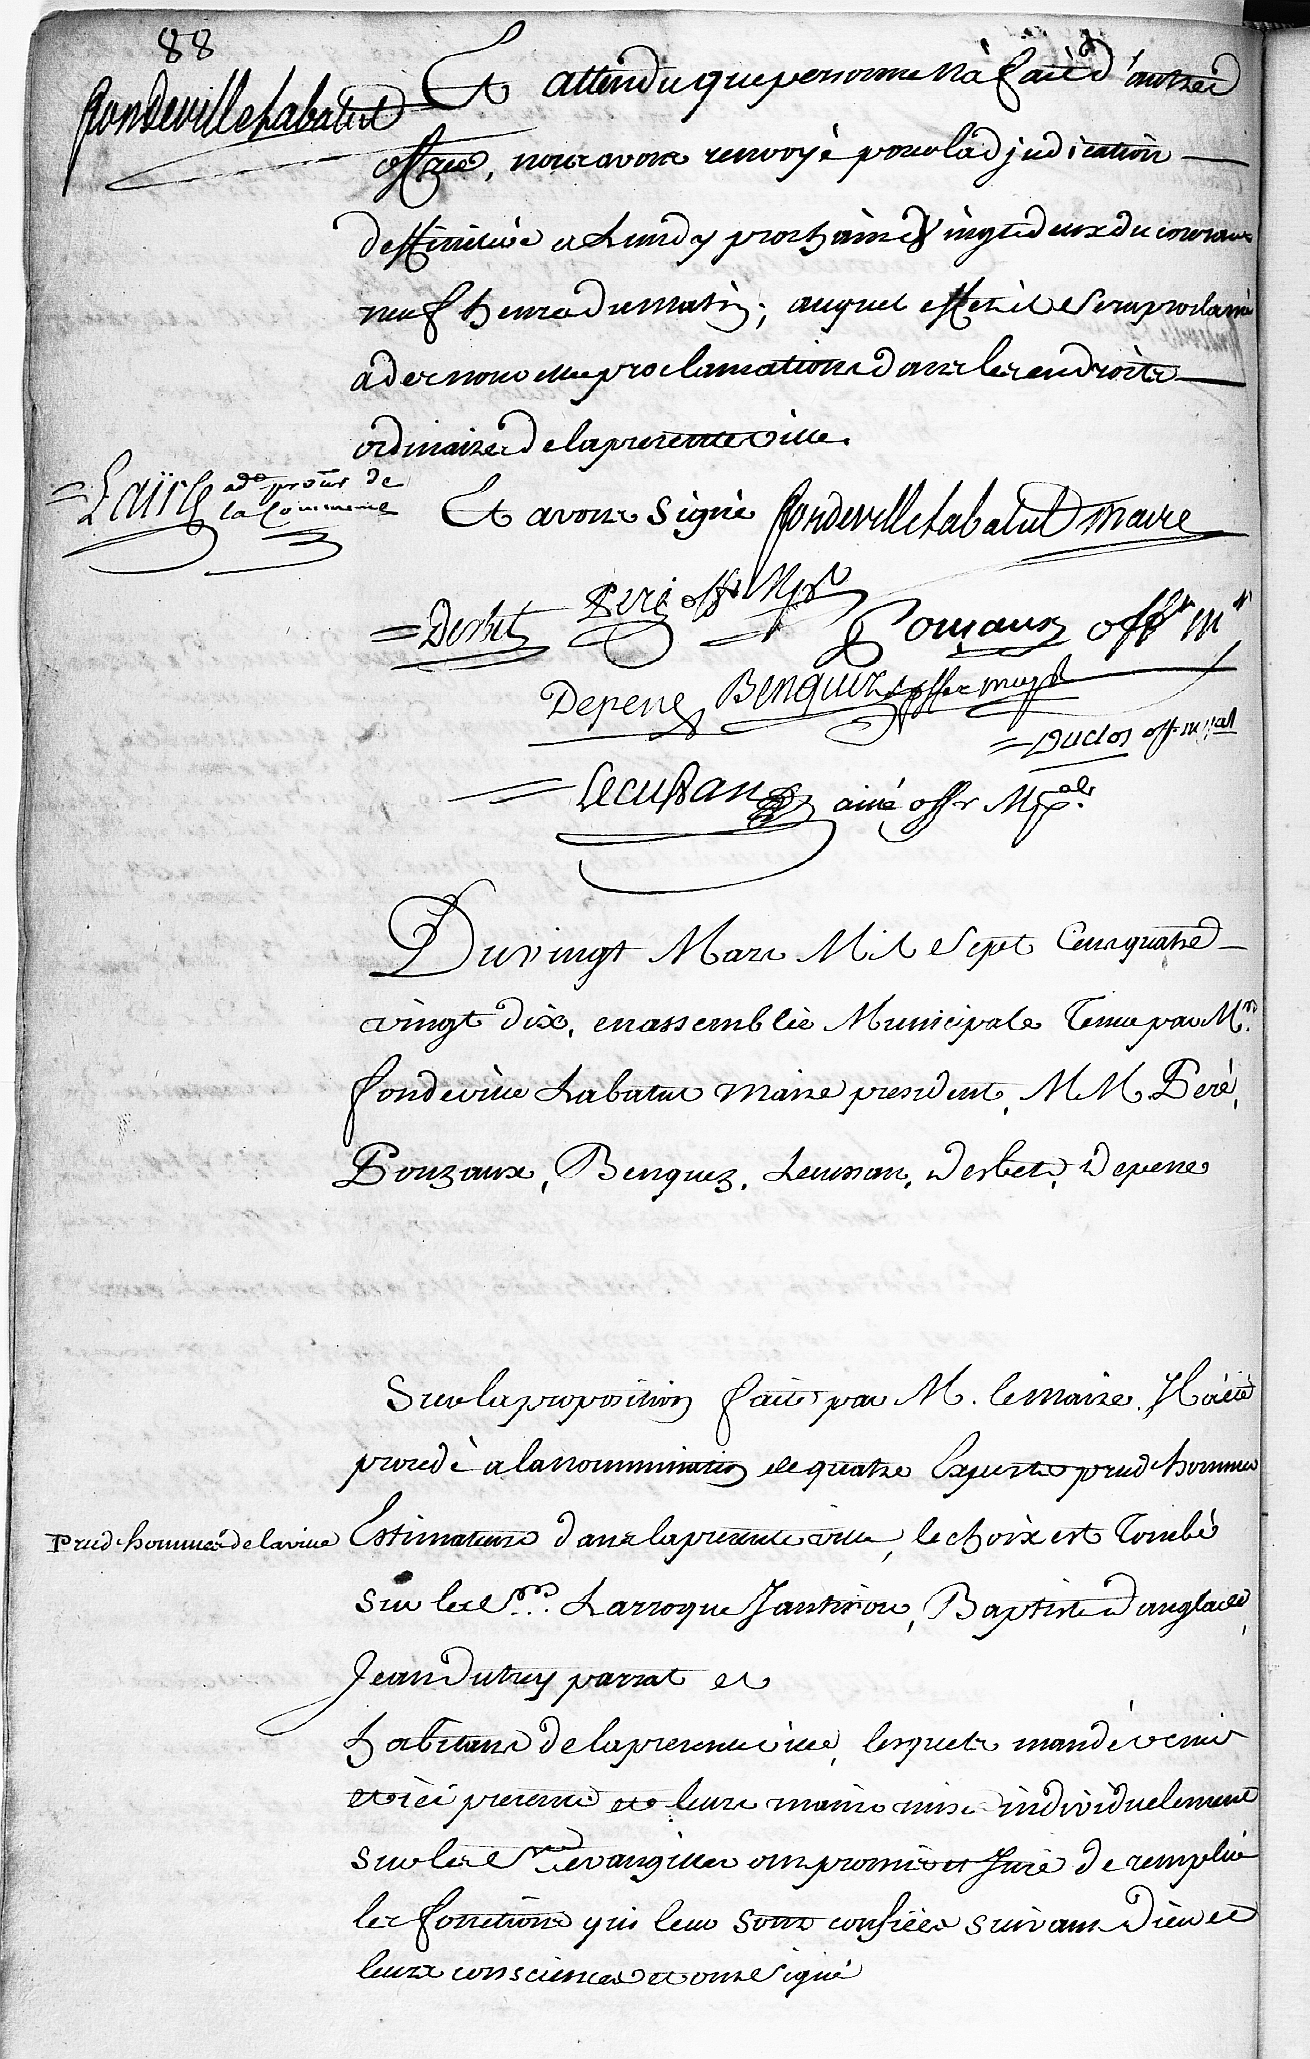 88
fondeville Labatut
Et attendu que personne n'a fait d'autres
offres, nous avons renvoyé pour l'adjudication
deffinitive a Lundy prochain vingt deux du courant
neuf heures du matin; auquel effet il sera proclamé
a de nouvelles proclamations dans les endroits
ordinaires de la presente ville.
Lair ad° pro^ur de
la Commune
Et avons signé fondeville Labatut maire
Derbet Peré off^r Mpal
Pouzaux off^r m^l
Depene Benquez off^er mup^l
Duclos off. m^al
Lecussan ainé off^r Mp^al.
Du vingt Mars Mil sept Cens quatre
vingt dix, en assemblée Municipale Tenue par M^r.
fondeville Labatut maire president, MM. Peré,
Pouzaux, Benquez, Lecussan, Derbet, Depene
Sur la proposition faite par M. le maire. Il a été
procedé a la nommination de quatre Experts prud'hommes
Prud'hommes de la ville
Estimateurs dans la presente ville, le choix est Tombé
Sur les S^rs. Larroque Jantirou, Baptiste Danglade,
Jean Dutrey parrat et
habitans de la presente ville, lesquels mandé venir
et ici presents et leurs mains mise individuelement
sur les S^ts evangilles ont promis et Juré de remplir
les fonctions qui leur sont confiées suivant Dieu et
leurs consciences et ont signé